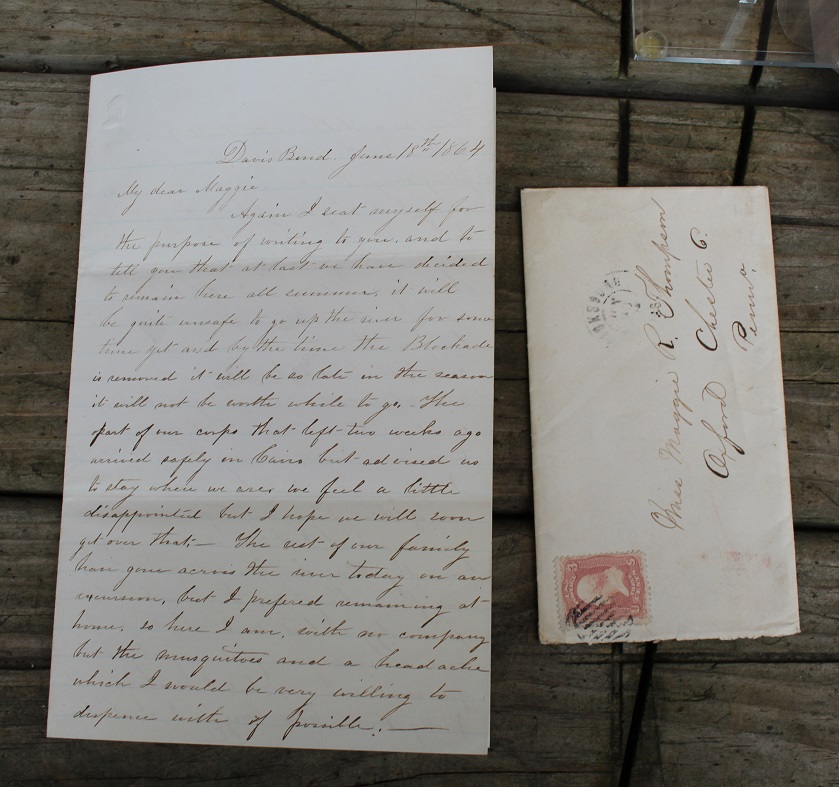 Davis Bend. June 18th 1864
My dear Maggie
Again I seat myself for
the purpose of writing to you, and to
tell you that at last we have decided
to remain here all summer, it will
be quite unsafe to go up the river for some
time yet and by the time the Blockade
is removed it will be so late in the season
it will not be worth while to go. - The
part of our corps that left two weeks ago
arrived safely in Cairo but advised us
to stay where we are, we feel a little
disappointed but I hope we will soon
get over that; - The rest of our family
have gone across the river today on an
excursion, but I prefered remaining at
home. so here I am, with no company
but the musquitoes and a headache
which I would be very willing to
dispence with if possible. -
Miss Maggie R. Thompson
Oxford Chester C.
Penn'a.